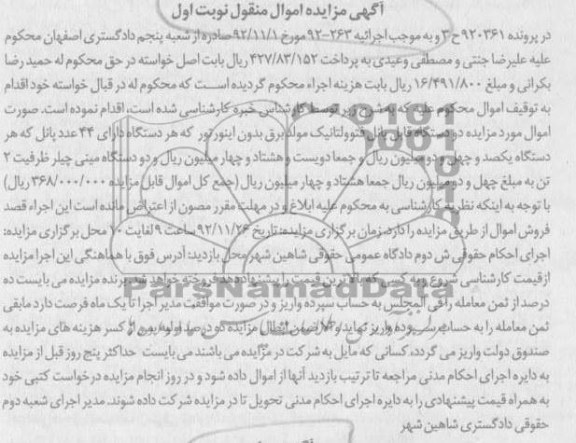 آگهی مزایده اموال منقول نوبت اول
در پرونده ۹۲۰۳۶۱ح۳ و به موجب اجرائیه ۲۶۳-۹۲ مورخ ۹۲/۱۱/۱ صادره از شعبه پنجم دادگستری اصفهان محکوم
علیه علیرضا جنتی و مصطفی وعیدی به پرداخت ۴۲۷/۸۳/۱۵۲ ریال بابت اصل خواسته در حق محکوم له حمید رضا
بکرانی و مبلغ ۱۶/۴۹۱/۸۰۰ ریال بابت هزینه اجراء محکوم گردیده است که محکوم له در قبال خواسته خود اقدام
به توقیف اموال محکوم علیه که به شرح زیر توسط کارشناس خبره کارشناسی شده است، اقدام نموده است. صورت
اموال مورد مزایده دو دستگاه قابل پانل فتوولتانیک مولد برق بدون اینورتور که هر دستگاه دارای ۴۴ عدد پانل که هر
دستگاه یکصد و چهل و دو میلیون ریال و جمعا دویست و هشتاد و چهار میلیون ریال و دو دستگاه مینی چیلر ظرفیت ۲
تن به مبلغ چهل و دو میلیون ریال جمعا هشتاد و چهار میلیون ریال (جمع کل اموال قابل مزایده ۳۶۸/۰۰۰/۰۰۰ ریال)
با توجه به اینکه نظریه کارشناسی به محکوم علیه ابلاغ و در مهلت مقرر مصون از اعتراض مانده است این اجراء قصد
فروش اموال از طریق مزایده را دارد. زمان برگزاری مزایده: تاریخ ۹۲/۱۱/۲۶ ساعت ۹ لغایت ۱۰ محل برگزاری مزایده:
اجرای احکام حقوقی ش دوم دادگاه عمومی حقوقی شاهین شهر محل بازدید: آدرس فوق با هماهنگی این اجرا مزایده
از قیمت کارشناسی شروع و به کسی که بالاترین قیمت را پیشنهاد دهد فروخته خواهد شد. برنده مزایده می بایست ده
درصد از ثمن معامله را فی المجلس به حساب سپرده واریز و در صورت موافقت مدیر اجرا تا یک ماه فرصت دارد مابقی
ثمن معامله را به حساب سپرده واریز نماید و الا ضمن ابطال مزایده ده درصد اولیه پس از کسر هزینه های مزایده به
صندوق دولت واریز می گردد، کسانی که مایل به شرکت در مزایده می باشند می بایست حداکثر پنج روز قبل از مزایده
به دایره اجرای احکام مدنی مراجعه تا ترتیب بازدید آنها از اموال داده شود و در روز انجام مزایده درخواست کتبی خود
به همراه قیمت پیشنهادی را به دایره اجرای احکام مدنی تحویل تا در مزایده شرکت داده شوند. مدیر اجرای شعبه دوم
حقوقی دادگستری شاهین شهر
ParsNamadData